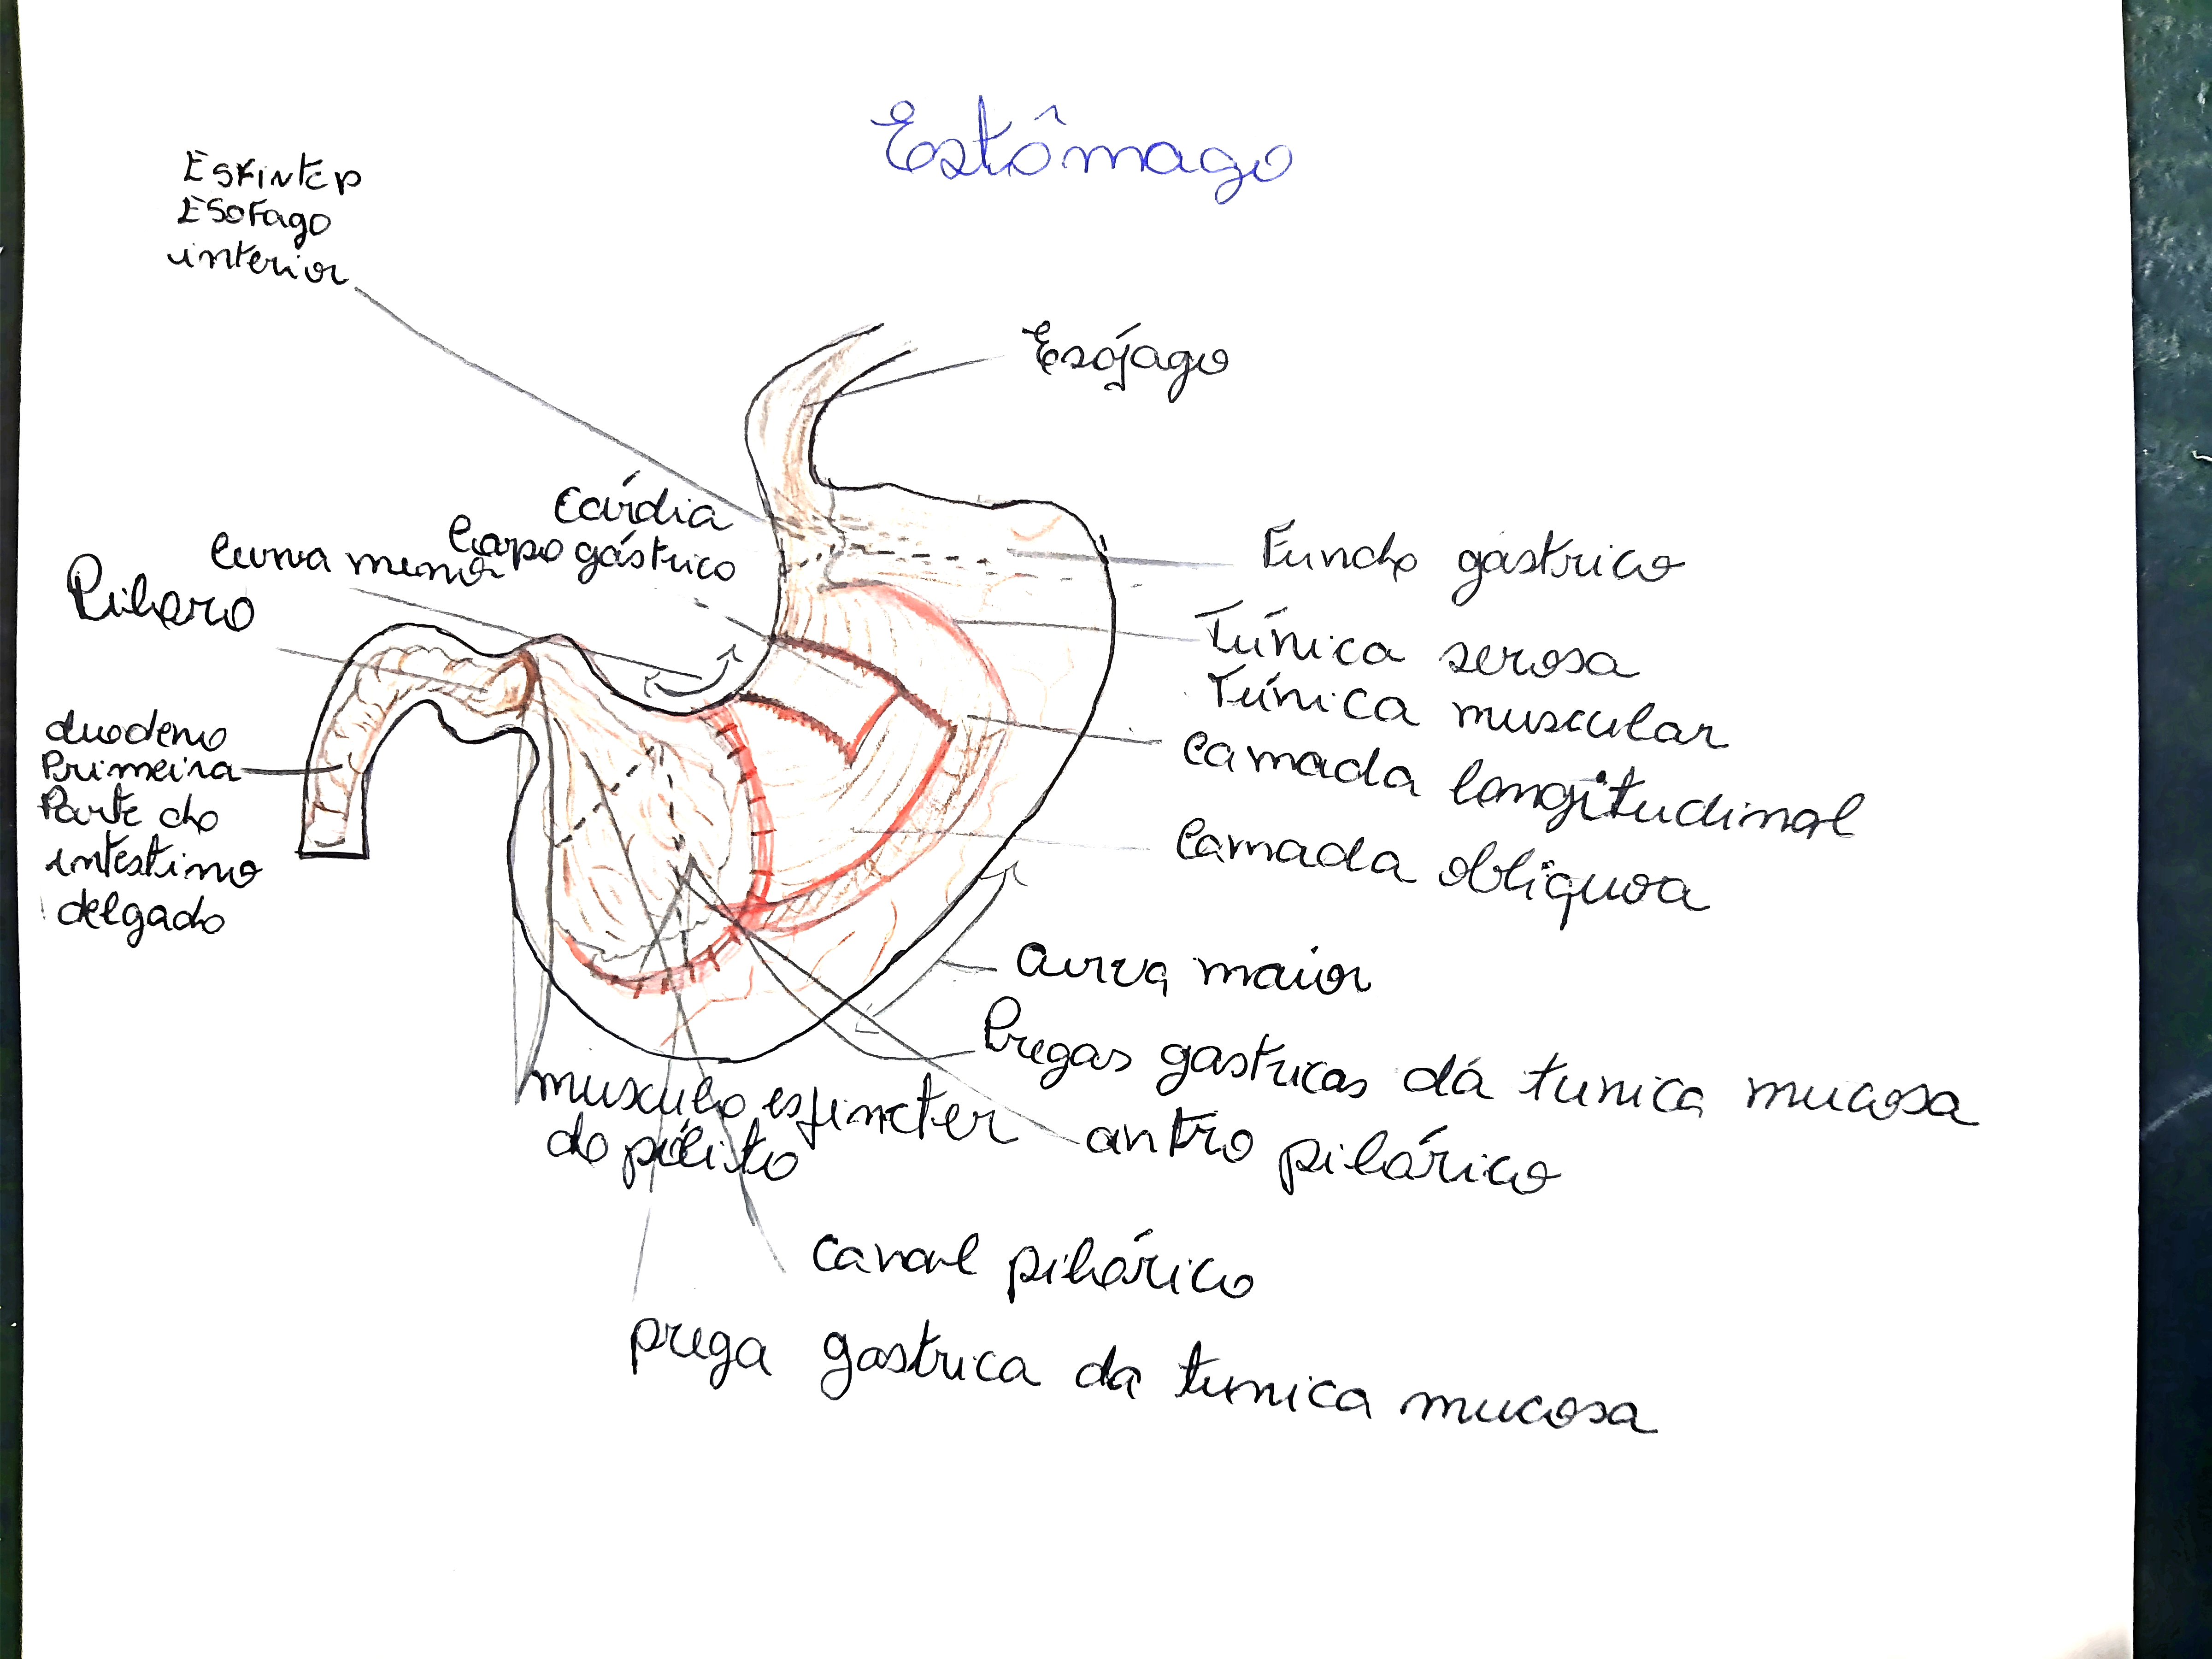 Estômago
Esfinter
Esofago
interior
Esófago
Cárdia
Corpo gástrico
Curva menor
Piloro
Fundo gástrico
Túnica serosa
Túnica muscular
Camada longitudinal
Camada obliquoa
duodeno
Primeira
Parte do
intestino
delgado
Curva maior
Pregas gastricas dá tunica mucosa
musculo esfincter
do
antro pilórico
canal pilórico
prega gastrica da tunica mucosa